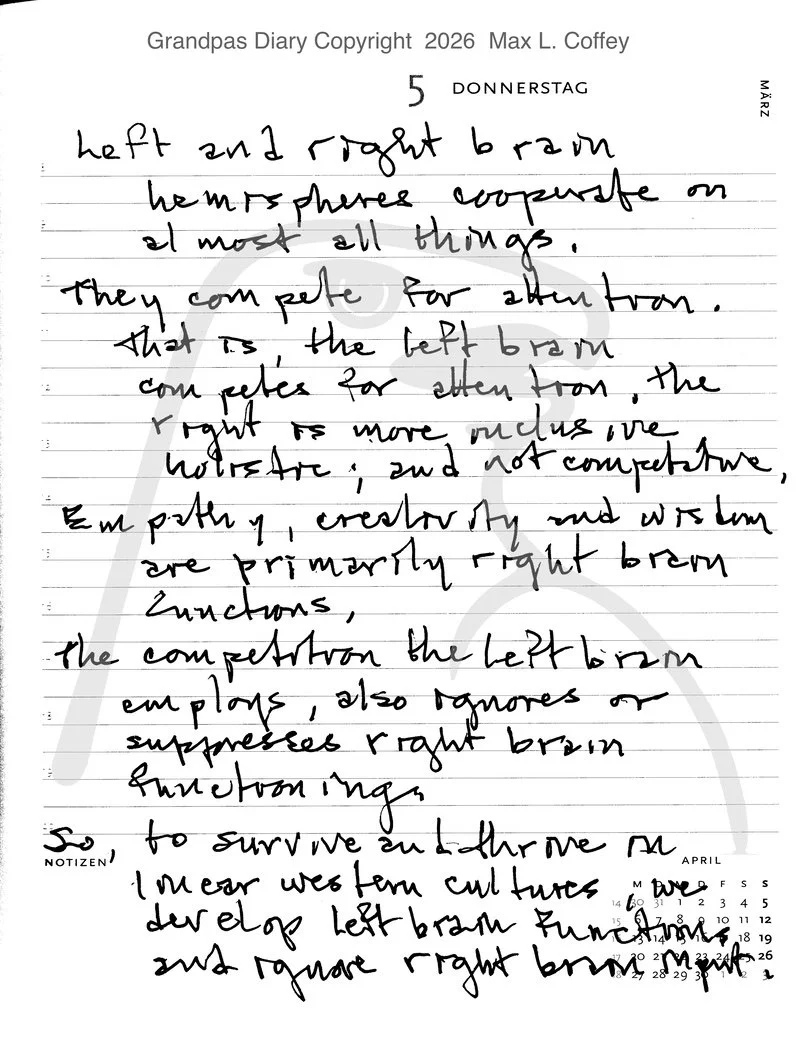 Grandpas Diary Copyright 2026 Max L. Coffey
5 DONNERSTAG
MÄRZ
Left and right brain
hemispheres cooperate on
almost all things.
They compete for attention.
That is, the left brain
competes for attention, the
right is more inclusive
holistic; and not competitive,
Empathy, creativity and wisdom
are primarily right brain
functions,
The competition the left brain
employs, also ignores or
suppresses right brain
functioning,
So, to survive and thrive in
NOTIZEN
APRIL
linear western cultures, we
develop left brain functions
and ignore right brain input.
M D F S S
14 30 31 1 2 3 4 5
15 6 7 8 9 10 11 12
13 14 15 16 18 19
17 20 21 22 23 24 25 26
18 27 28 29 30 1 2 3